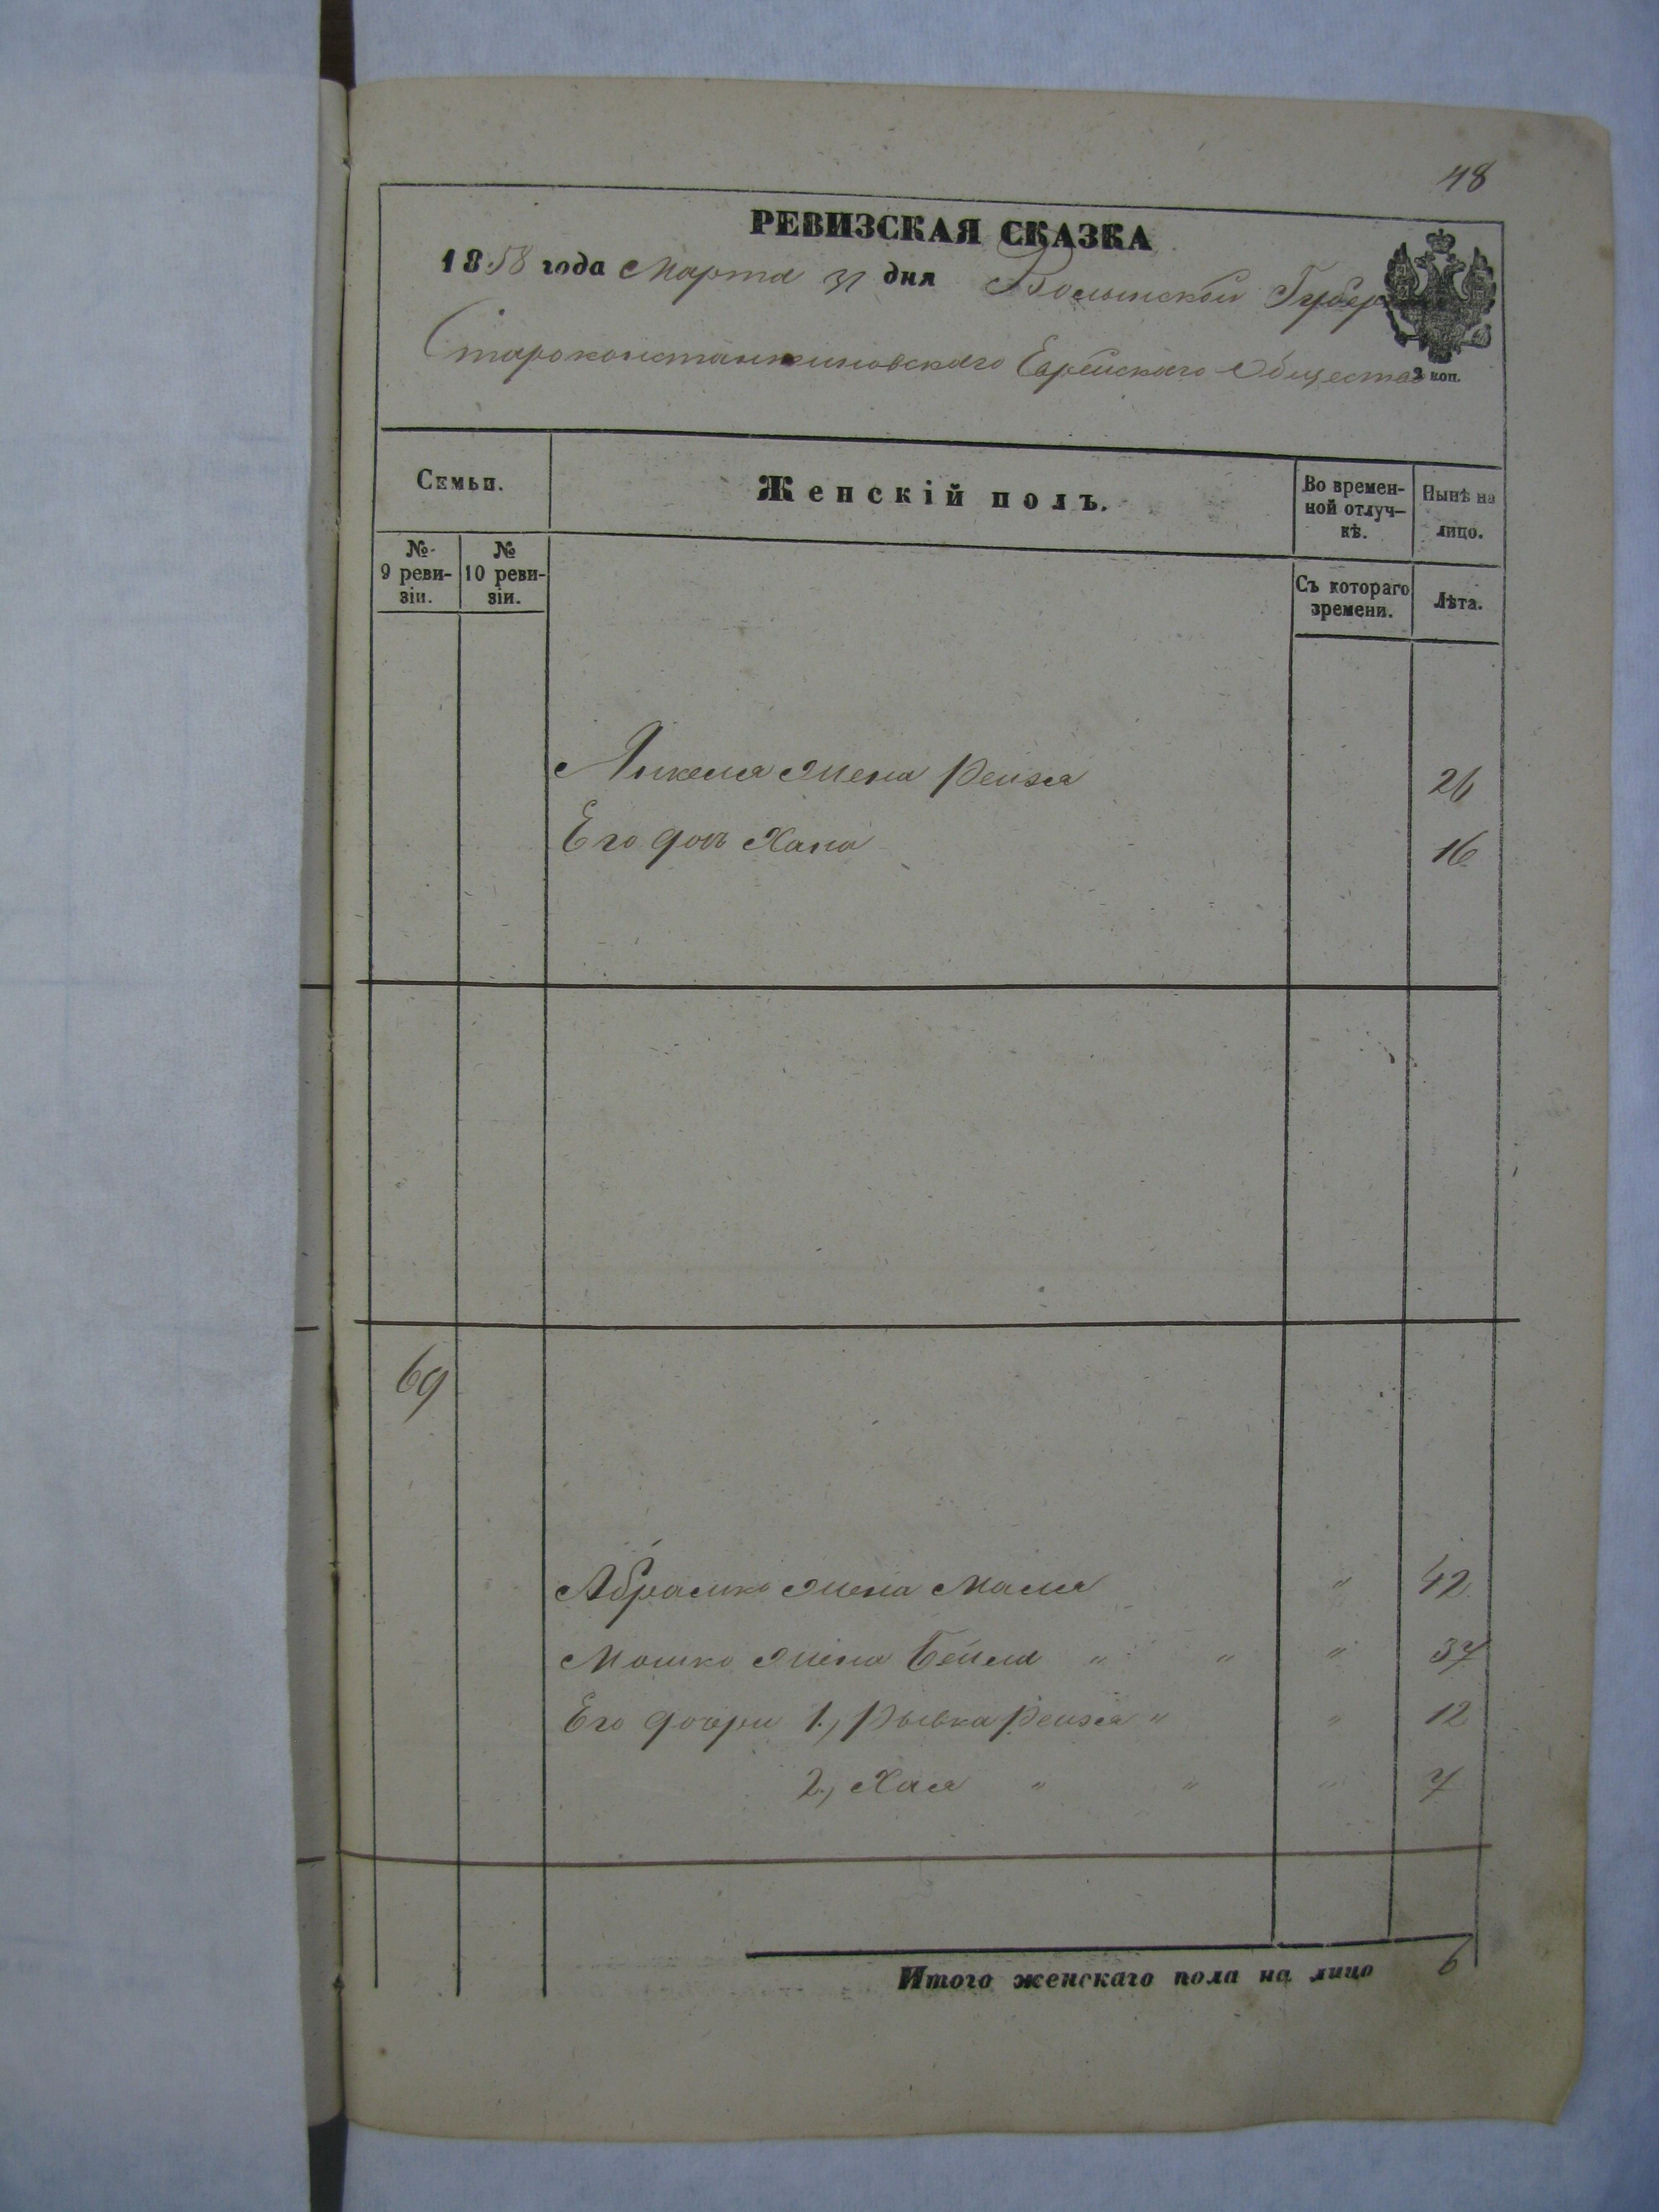 48
РЕВИЗСКАЯ СКАЗКА
1858 года Марта 31 дня Волынской Губер
Староконстантиновскаго Еврейскаго Общества
2 коп.
Семьи.
Женскій полъ.
Во времен-
ной отлуч-
кѣ.
Нынѣ на
лицо.
№
9 реви-
зіи.
№
10 реви-
зіи.
Съ котораго
времени.
Лѣта.
жена Рейзя 26
Его дочь Хана 16
69
Абрамко жена Маля " 42
Мошко жена Бейла " " " 37
Его дочери 1., Рывка Рейзя " " 12
2., Хая " " " 7
Итого женскаго пола на лицо 6